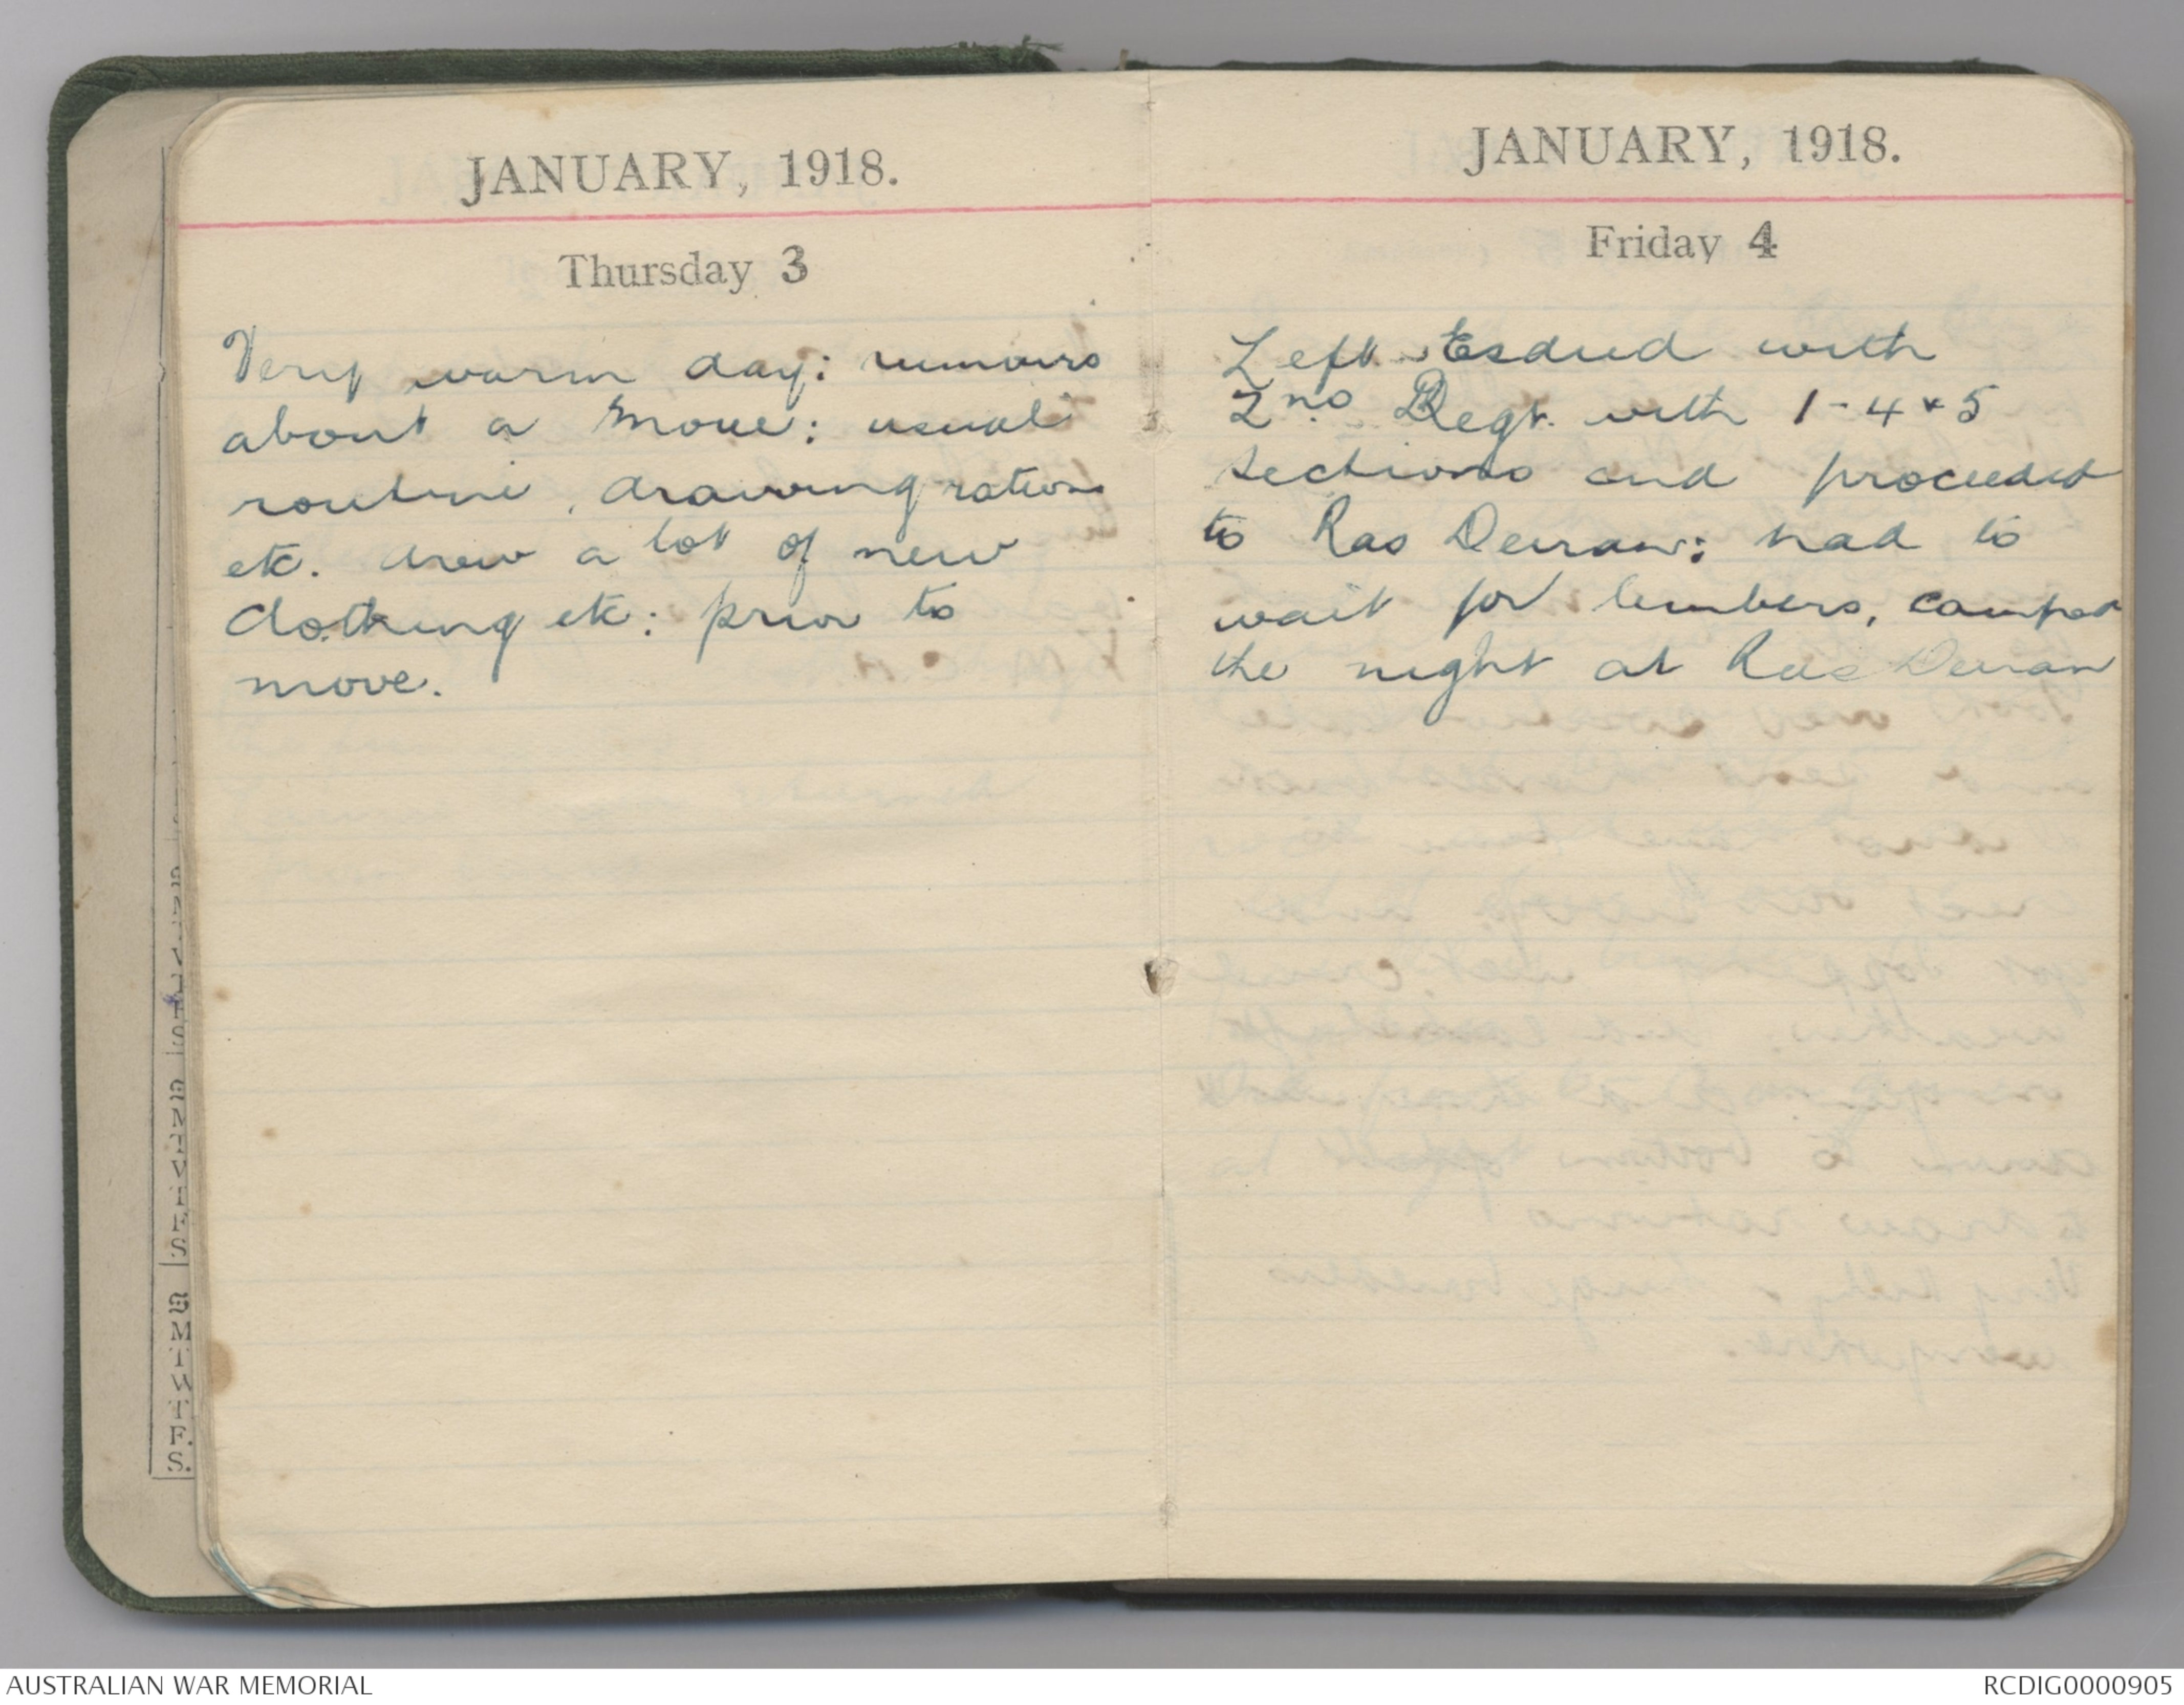 JANUARY, 1918.
Thursday 3
Very warm day: rumours
about a move: usual
routine, drawing rations
etc. drew a lot of new
Clothing etc: prior to
move.
JANUARY, 1918.
Friday 4
Left Esdud with
2nd Regt. with 1-4 & 5
sections and proceeded
to Ras Deiran: had to
wait for limbers, camped
the night at Ras Deiran
S
M
T
W
T
F
S
S
M
T
W
T
F.
S.
AUSTRALIAN WAR MEMORIAL
RCDIG0000905